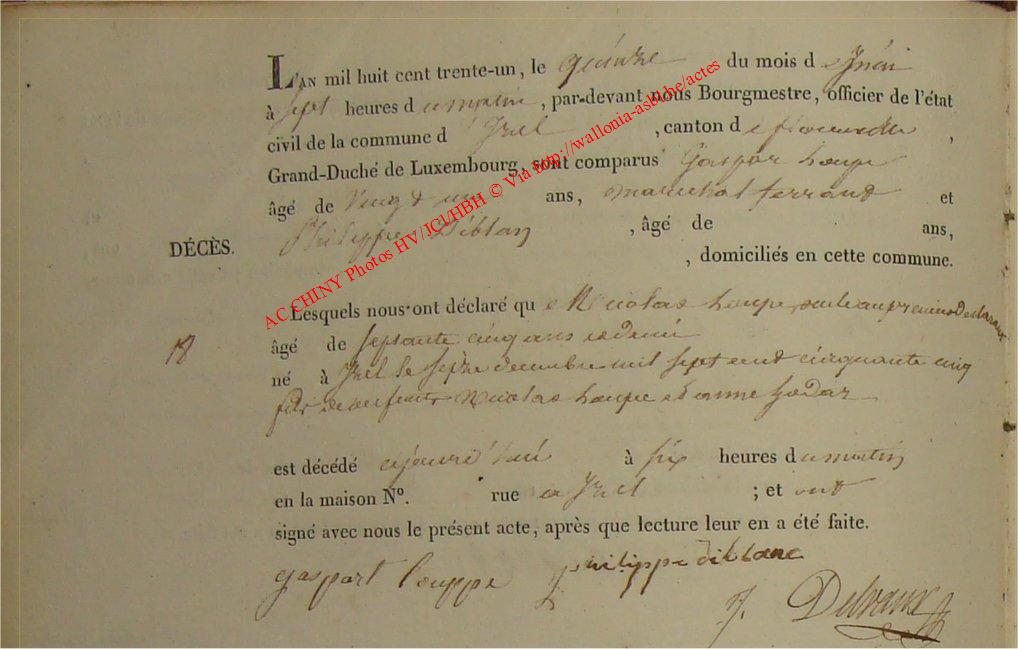 L'AN mil huit cent trente-un, le quinze du mois de Juin
à sept heures du matin, par-devant nous Bourgmestre, officier de l'état
civil de la commune d'Izel, canton de florenville,
Grand-Duché de Luxembourg, sont comparus Gaspar Loupe
âgé de Vingt un ans, marechal ferrant et
Philippe Diblan, âgé de ans,
DÉCÈS.
, domiciliés en cette commune.
AC CHINY Photos HV/JCL/HBH © Via http://wallonia-asbl.be/actes
Lesquels nous ont déclaré que Nicolas Loupe, au premier declarant
18
âgé de septante cinq ans et demi
né à Izel le decembre mil sept cent cinquante cinq
fils de Nicolas Loupe et anne
est décédé à six heures du matin
en la maison N°. rue a Izel ; et ont
signé avec nous le présent acte, après que lecture leur en a été faite.
gaspart Louppe philippe diblanc
J. Delvaux